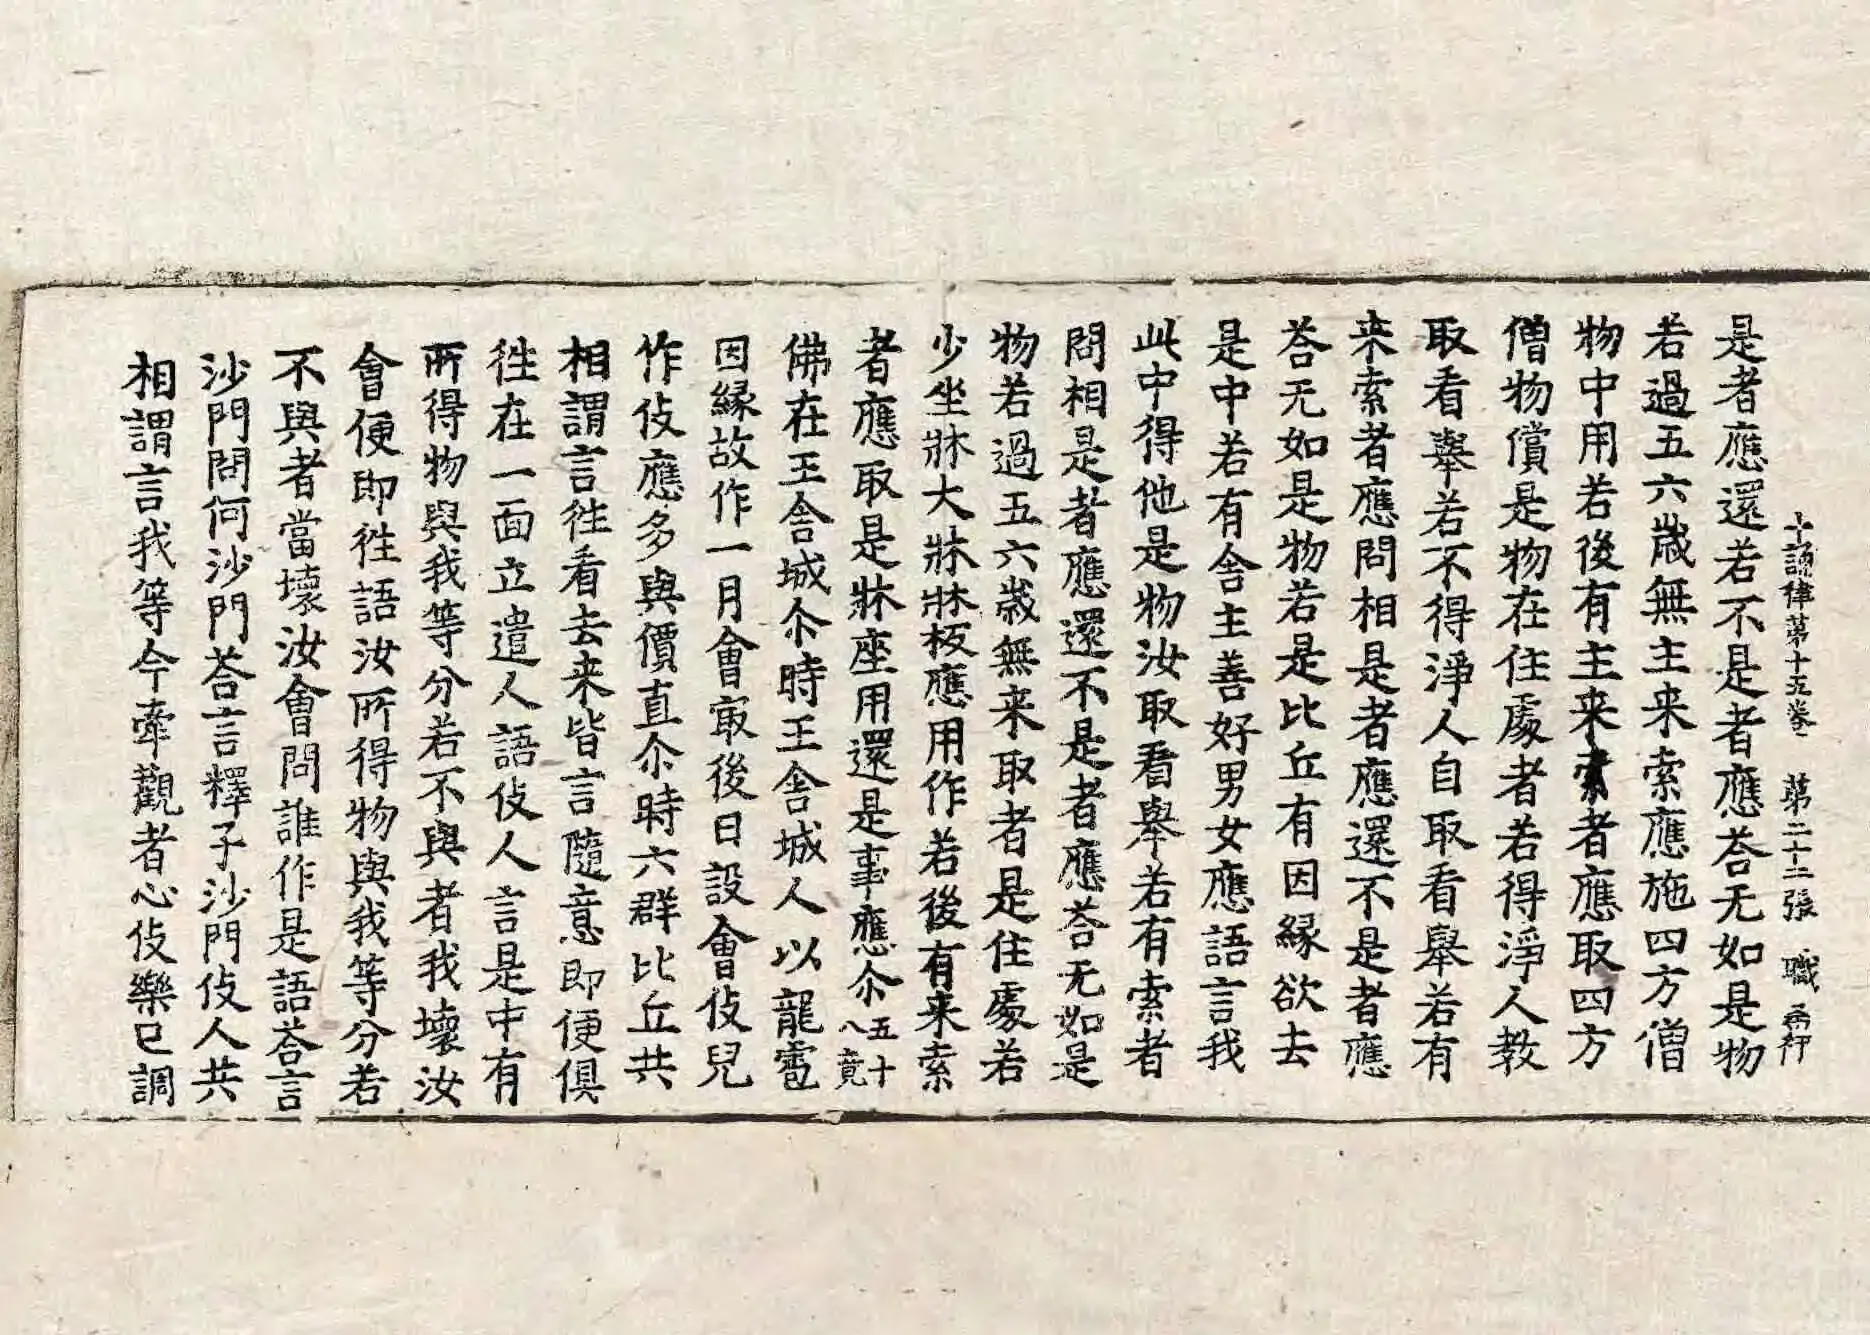 十誦律第十五卷 第二十二張 職
是者應還若不是者應荅无如是物
若過五六歲無主来索應施四方僧
物中用若後有主来索者應取四方
僧物償是物在住處者若得淨人教
取看舉若不得淨人自取看舉若有
来索者應問相是者應還不是者應
荅无如是物若是比丘有因緣欲去
是中若有舍主善好男女應語言我
此中得他是物汝取看舉若有索者
問相是者應還不是者應荅无如是
物若過五六歲無来取者是住處若
少坐牀大牀牀板應用作若後有来索
者應取是牀座用還是事應尒五十八竟
佛在王舍城尒時王舍城人以龍雹
因緣故作一月會冣後日設會伎兒
作伎應多與價直尒時六群比丘共
相謂言徃看去来皆言隨意即便俱
徃在一面立遣人語伎人言是中有
所得物與我等分若不與者我壞汝
會便即徃語汝所得物與我等分若
不與者當壞汝會問誰作是語荅言
沙門問何沙門荅言釋子沙門伎人共
相謂言我等今牽觀者心伎樂已調